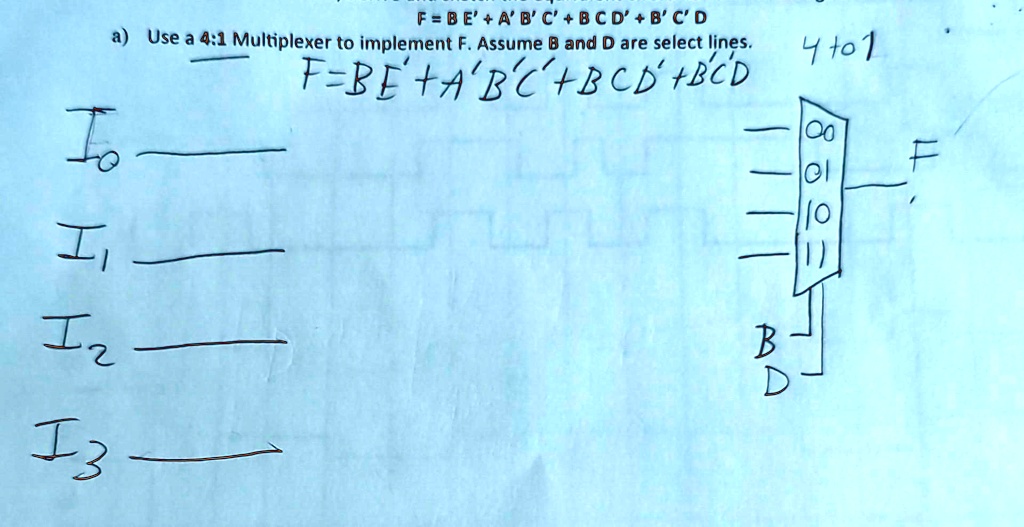 F = B E' + A' B' C' + B C D' + B' C' D
a) Use a 4:1 Multiplexer to implement F. Assume B and D are select lines.
4 to 1
F=BE'+A'B'C'+BCD'+B'C'D
I0
I1
I2
I3
00
01
10
11
F
B
D